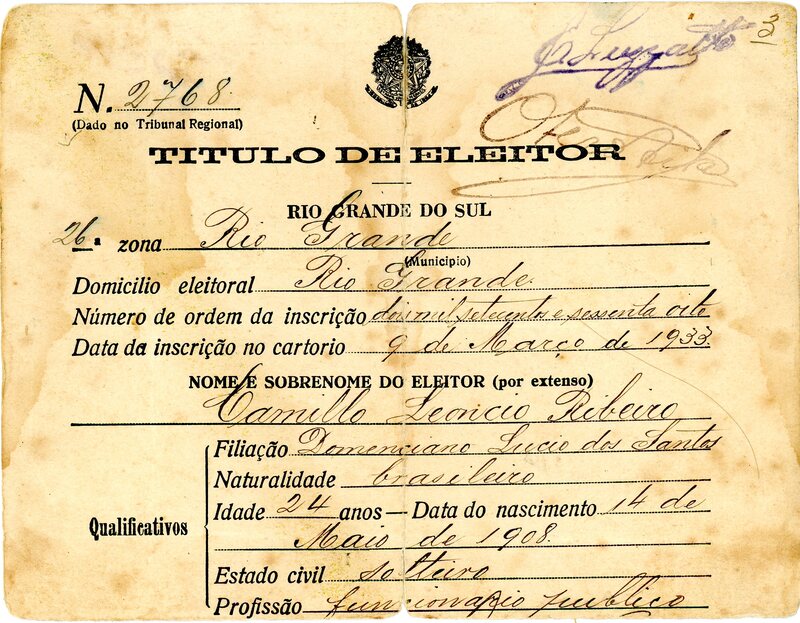 3
N. 2768
(Dado no Tribunal Regional)
TITULO DE ELEITOR
RIO GRANDE DO SUL
26.ª zona Rio Grande
(Municipio)
Domicilio eleitoral Rio Grande
Número de ordem da inscrição dois mil setecentos e sessenta oito
Data da inscrição no cartorio 9 de Março de 1933
NOME E SOBRENOME DO ELEITOR (por extenso)
Camillo Leoncio Ribeiro
Qualificativos
Filiação Domenciano Lucio dos Santos
Naturalidade brasileiro
Idade 24 anos — Data do nascimento 14 de
Maio de 1908
Estado civil solteiro
Profissão funcionario publico